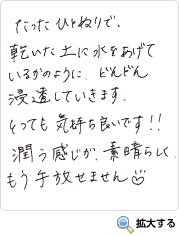 たった ひとねりで、
乾いた土に水をあげて
いるかのように、どんどん
浸透していきます。
とっても気持ち良いです!!
潤う感じが、素晴らしく、
もう手放せません♡
拡大する